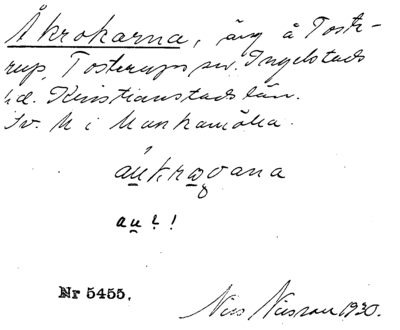 Åkrokarna, äng å Toste-
rup, Tosterups sn. Ingelstads
hd. Kristianstads län.
Sv. M i Munkamölla.
áukrawana
au ? !
Nr 5455.
Nils Nilsson 1930.